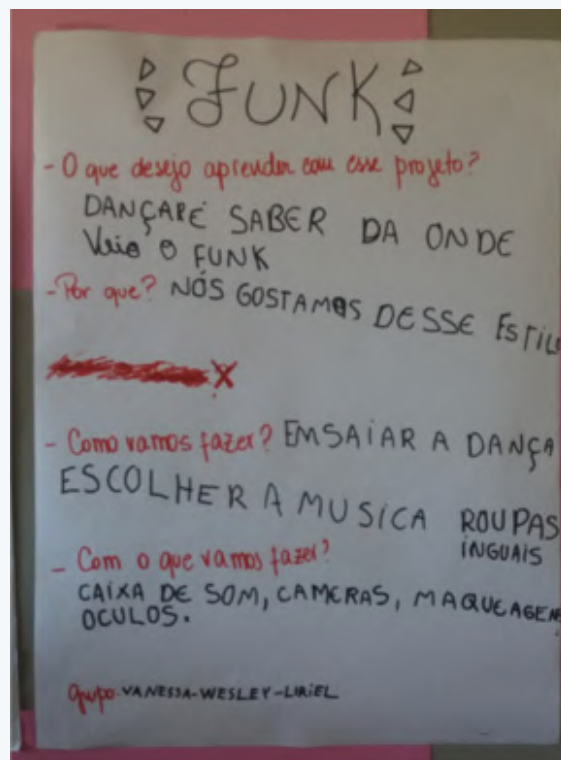 FUNK
- O que desejo aprender com esse projeto?
DANÇARE SABER DA ONDE
Veio O FUNK
- Por que? NÓS GOSTAMOS DESSE ESTILO
- Como vamos fazer? EMSAIAR A DANÇA
ESCOLHER A MUSICA ROUPAS
INGUAIS
- Com o que vamos fazer?
CAIXA DE SOM, CAMERAS, MAQUEAGEM
OCULOS.
Grupo. VANESSA-WESLEY-LIRIEL